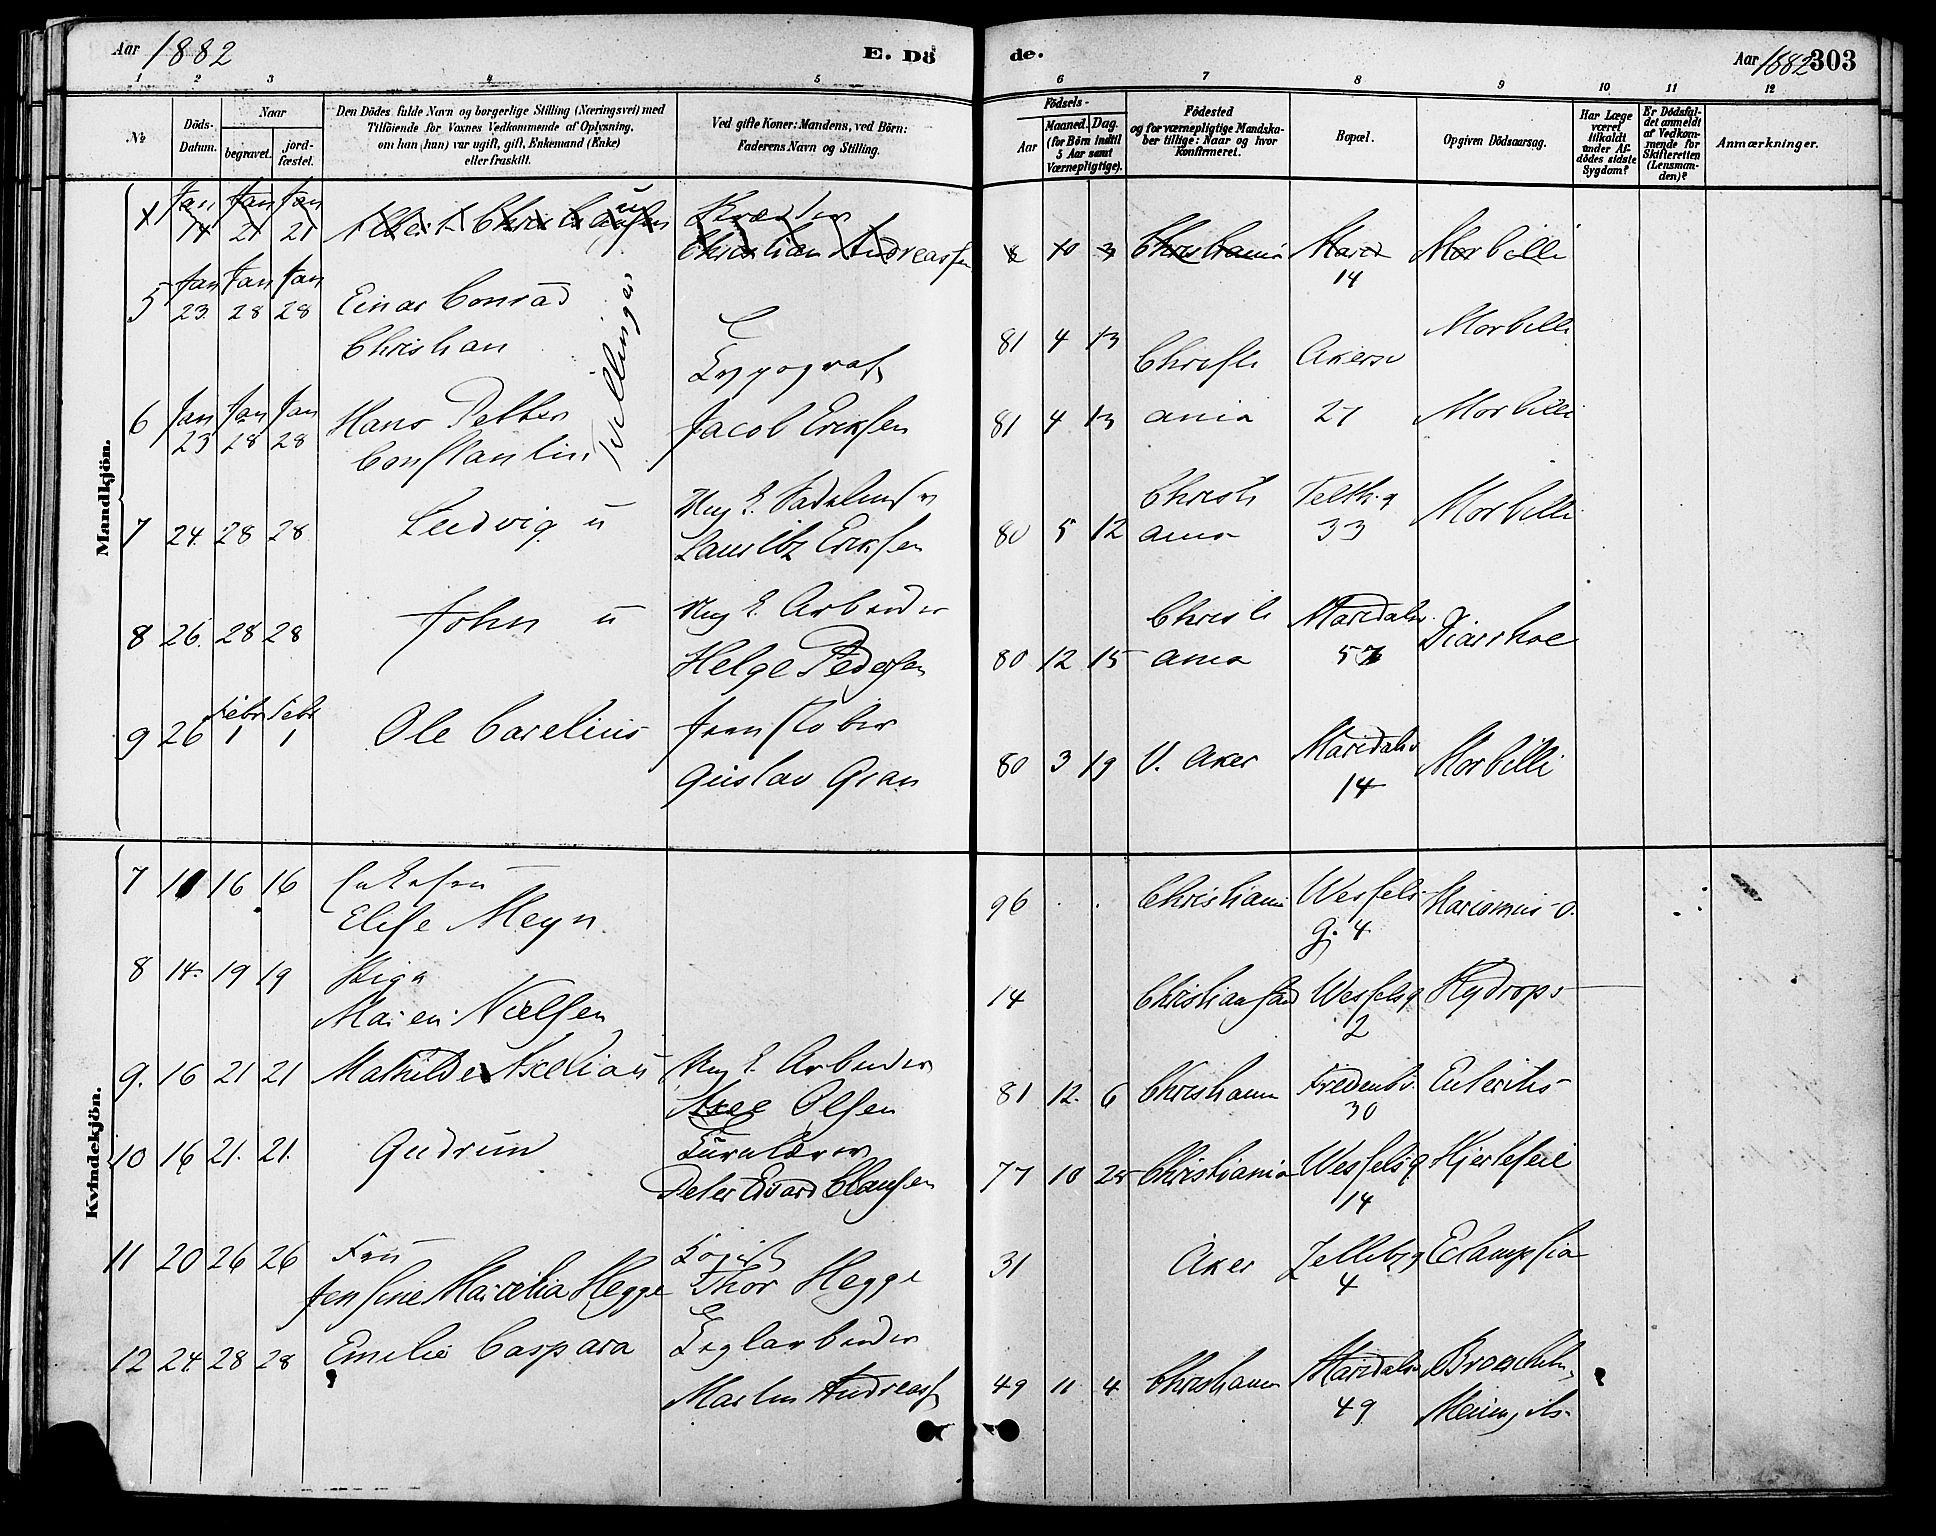 Aar 1882
E. Dö
de.
Aar 1882 303
1 2 3 4 5 6 7 8 9 10 11 12
№
Döds-
Datum.
Naar
begravet.
jord-
fæstet.
Den Dödes fulde Navn og borgerlige Stilling (Næringsvei) med
Tilföiende for Voxnes Vedkommende af Oplysning,
om han (hun) var ugift, gift, Enkemand (Enke)
eller fraskilt.
Ved gifte Koner: Mandens, ved Börn:
Faderens Navn og Stilling.
Födsels-
Aar
Maaned. Dag.
(for Börn indtil
5 Aar samt
Værnepligtige).
Födested
og for værnepligtige Mandska-
ber tillige: Naar og hvor
Konfirmeret.
Bopæl.
Opgiven Dödsaarsag.
Har Læge
været
tilkaldt
under Af-
dödes sidste
Sygdom?
Er Dödsfal-
det anmeldt
af Vedkom-
mende for
Skifteretten
(Lensman-
den)?
Anmærkninger.
Mandkjön.
Jan Jan Jan
14 21 21
Christian Andreassen
10 3 Christiania Marid 14 Morbilli
5 Jan 23. Jan 28 Jan 28 Einar Conrad
Christian
Tvillinger
Typograf
81 4 13 Christi Akersv Morbilli
6 Jan 23 Jan 28 Jan 28 Hans Petter
Constantin
Jacob Eriksen
81 4 13 ania 27 Morbilli
7 24. 28 28 Ludvig u
Lauritz Eriksen
80 5 12 Christi ania Telth.g 33 Morbilli
8 26. 28 28 John u
Ung E. Arbeider
Helge Pedersen
80 12 15 Christi ania Maridalsv. 57 Diarrhoe
9 26 Febr 1 Febr 1 Ole Carelius
Jernstöber
Gustav Gran
80 3 19 V. Aker Maridalsv 14 Morbilli
Kvindekjön.
7 11 16 16
Elise Meyn
96 . . Christiania Wessels g. 4
8 14. 19 19 Pige
Maren Nielsen
14 Christiansand Wesselsg 2 Hydrops
9. 16 21 21 Mathilde Axeliau
Ung E. Arbeider
Axel Olsen
81 12. 6 Christiania Fredensb. 30 Enteritis
10 16 21. 21. Gudrun
Turnlærer
Peter Edvard Clausen
77 10 25 Christiania Wesselsg 14 Hjertefeil
11 20 26 26 Fru
Jensine Marcelia Hegge
Thor Hegge
31 Aker 4 Eclampsia
12 24. 28 28 Emilie Caspara
Teglarbeider
Martin Andreass
49 11 4 Christiania Maridalsv 49